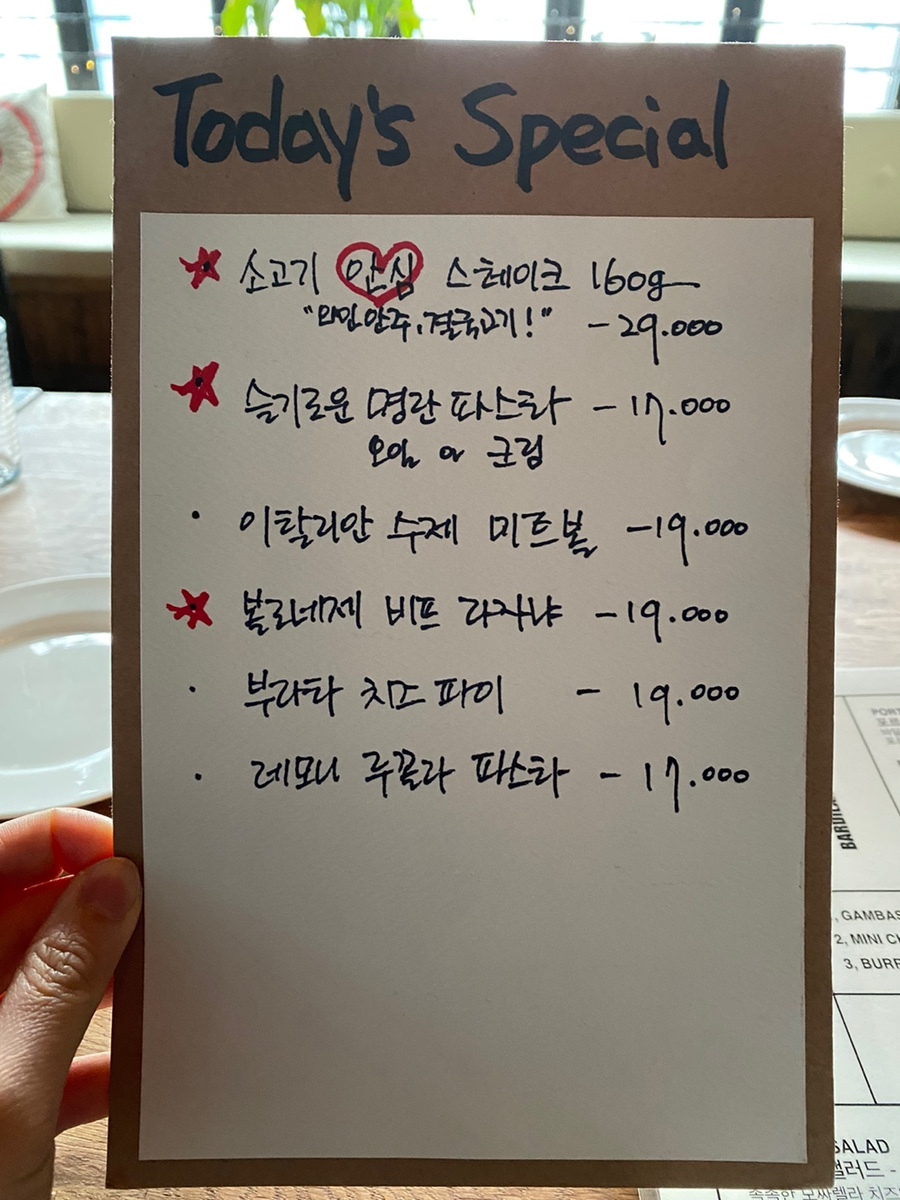 Today's Special
소고기 안심 스테이크 160g
"와인안주, 결국고기!" - 29.000
슬기로운 명란 파스타 - 17.000
오일 or 크림
이탈리안 수제 미트볼 - 19.000
볼로네제 비프 라자냐 - 19.000
부라타 치즈 파이 - 19.000
레모니 루꼴라 파스타 - 17.000
BARDILA
PORT
, GAMBAS
2, MINI CH
3, BURR
SALAD
샐러드 -
촉촉한 모싸렐라 치즈